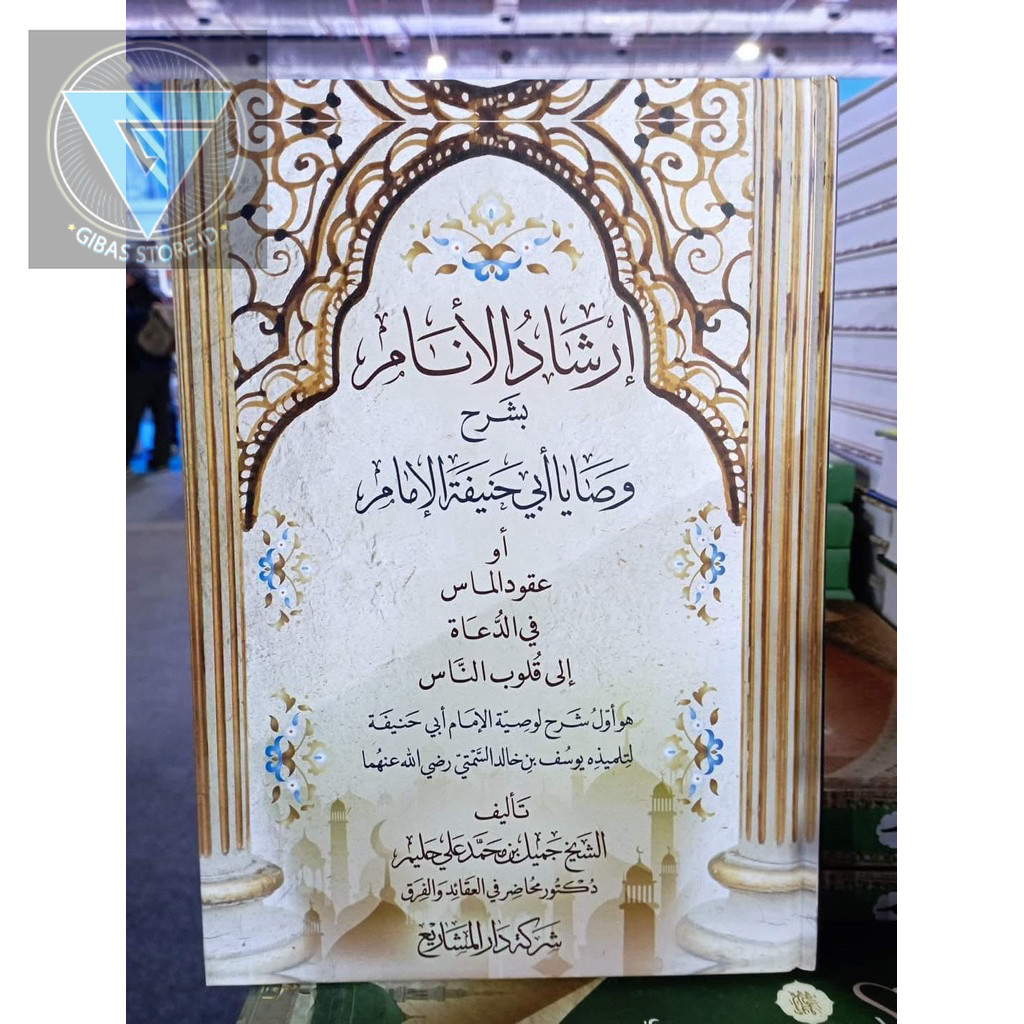 GIBAS STORE.ID
إرشادُ الأنام
بشرح
وصايا أبي حنيفة الإمام
أو
عقود الماس
في الدُّعاة
إلى قُلوب النَّاس
هو أوّلُ شرح لوصيّة الإمام أبي حَنيفَة
لِتلميذِه يوسُف بن خالد السَّمْتيّ رضي الله عنهُما
تَأليف
الشيخ جَميل بن محمّد علي حليم
دُكتور محُاضِر في العقائد والفِرق
شركة دار المشاريع